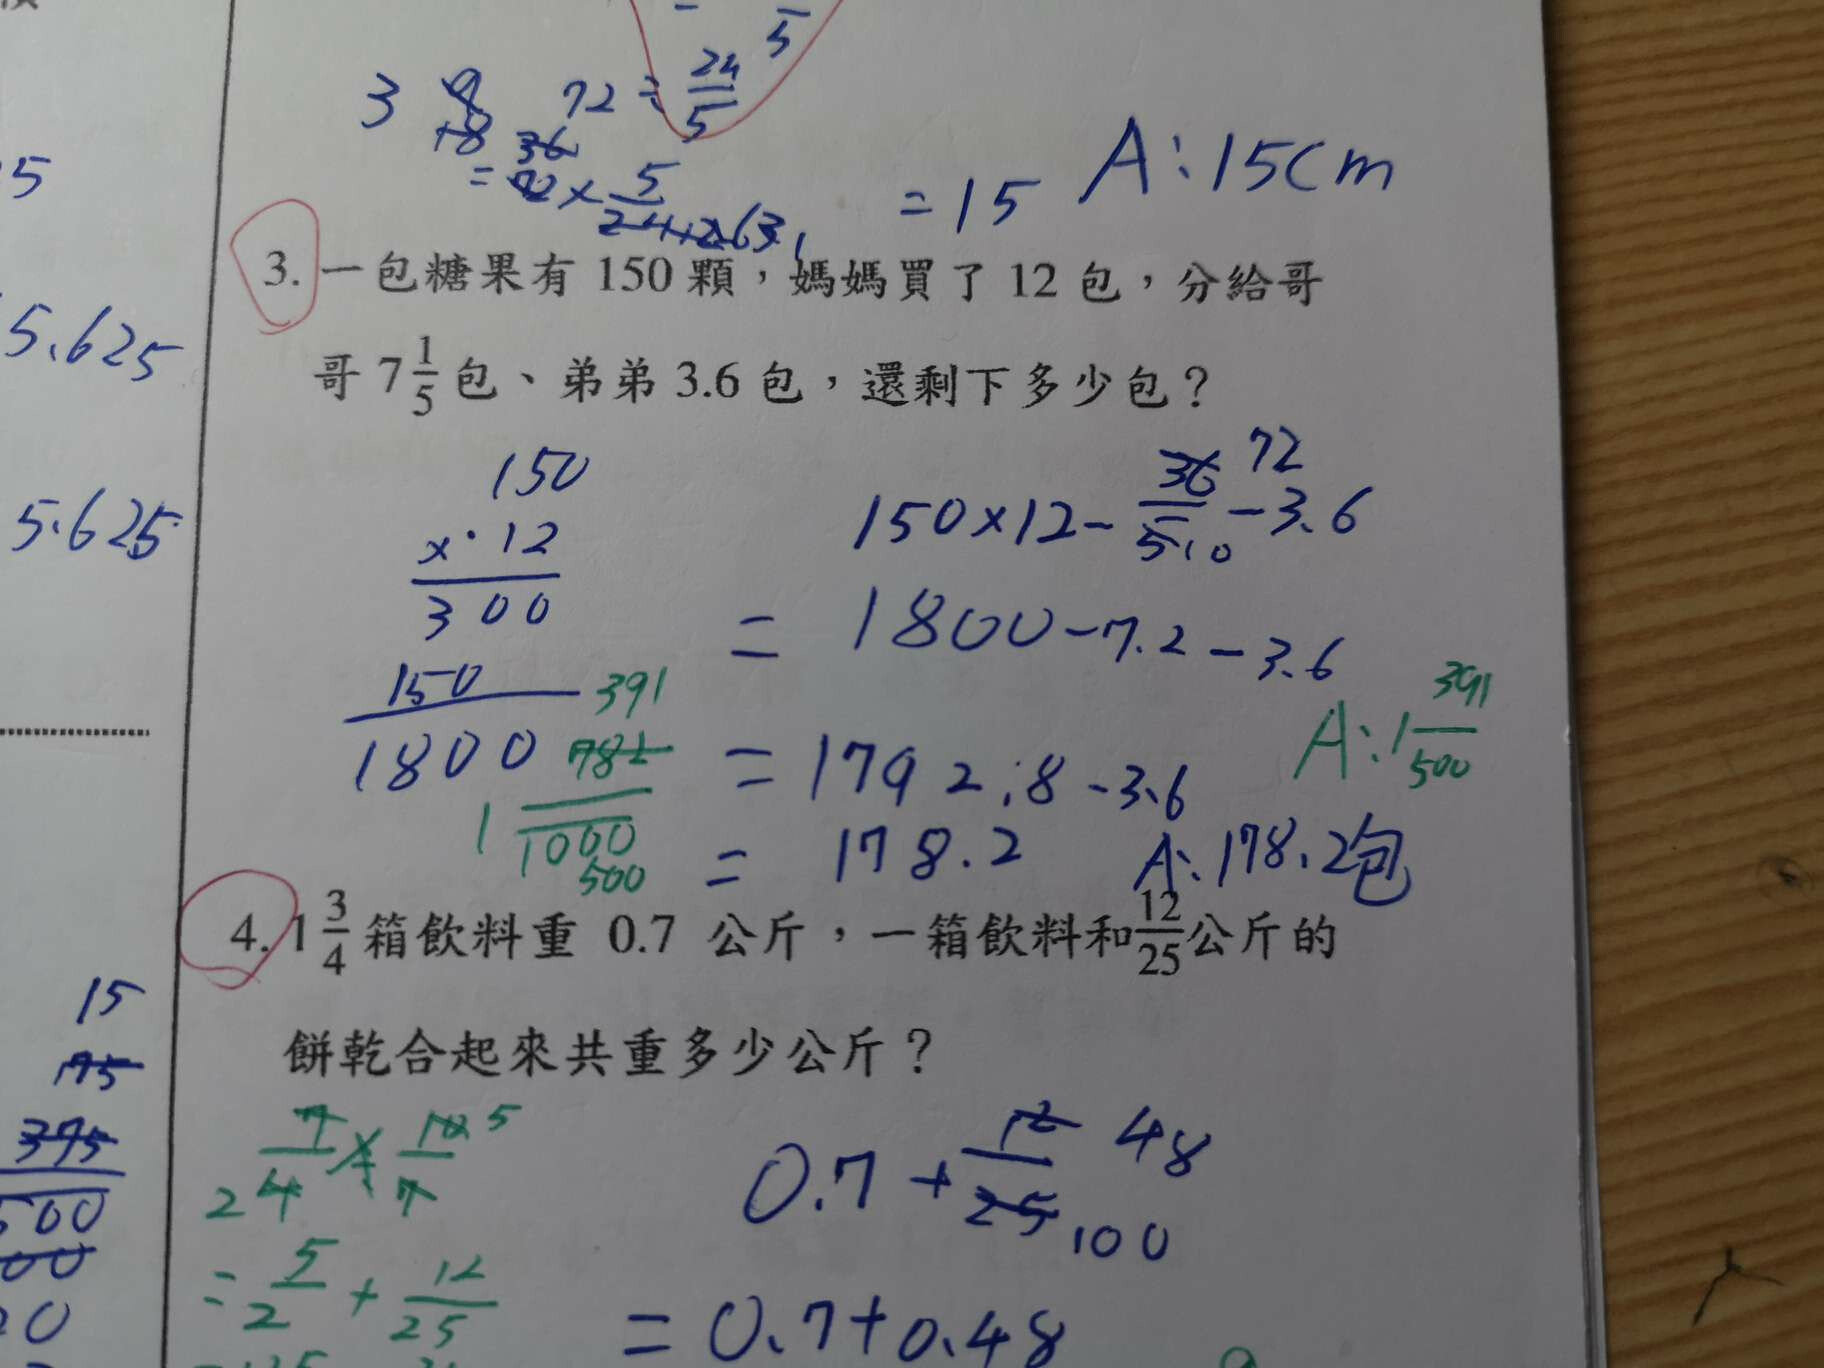 5
5.625
5.625
15
75
375
500
3 9 72 ÷ 24/5
+8
36
= 72 × 5/24 = 15 A:15cm
3. 一包糖果有 150 顆，媽媽買了 12 包，分給哥
哥 7 1/5 包、弟弟 3.6 包，還剩下多少包？
150
× 12
300
150
1800
150×12- 36/5 72/10 -3.6
= 1800-7.2-3.6
= 1792.8-3.6
= 178.2 A:178.2包
391
1 782/1000
500
A:1 391/500
4. 1 3/4 箱飲料重 0.7 公斤，一箱飲料和 12/25 公斤的
餅乾合起來共重多少公斤？
7/4 × 10/7 5
2
= 5/2 + 12/25
0.7 + 12/25 48/100
= 0.7+0.48